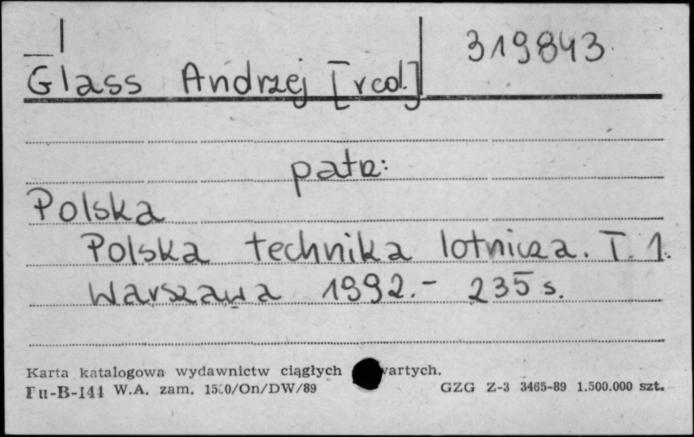 319843.
Glass Andrzej [red.]
patrz:
Polska
Polska technika lotnicza. T. 1.
Warszawa 1992.- 235 s.
Karta katalogowa wydawnictw ciągłych
Pu-B-141 W.A. zam. GZG Z-3 3465-89 1.500.000 szt.